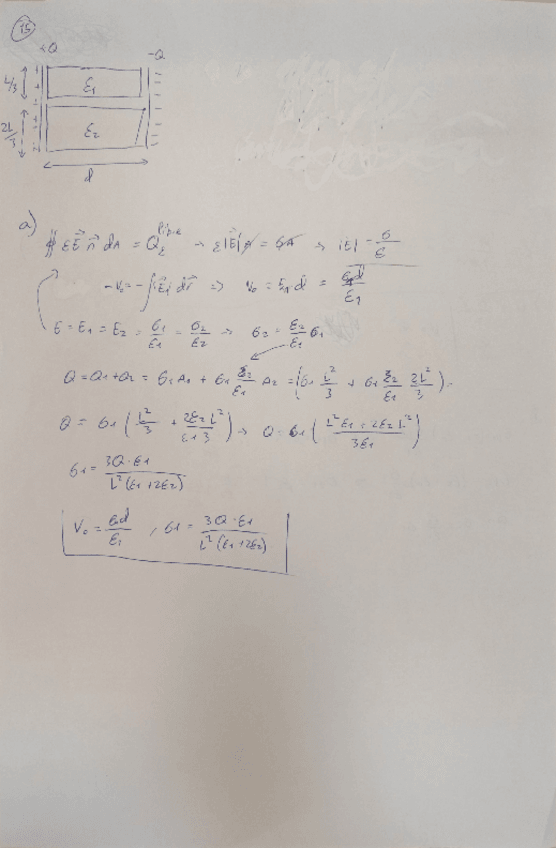 15
+Q -Q
L/3 ε1
2L/3 ε2
d
a) ∯ εE⃗ n⃗ dA = Q → ε|E⃗|A = σA → |E| = σ/ε
-V₀ = -∫E⃗1 dr⃗ => V₀ = E1 d = σ1d/ε1
E = E1 = E2 = σ1/ε1 = σ2/ε2 → σ2 = ε2/ε1 σ1
Q = Q1 + Q2 = σ1 A1 + σ1 ε2/ε1 A2 = (σ1 L²/3 + σ1 ε2/ε1 2L²/3) =
Q = σ1 (L²/3 + 2ε2L²/ε1 3) → Q = σ1 (L²ε1 + 2ε2 L²/3ε1)
σ1 = 3Q·ε1/L²(ε1+2ε2)
V₀ = σ1d/ε1 , σ1 = 3Q·ε1/L²(ε1+2ε2)